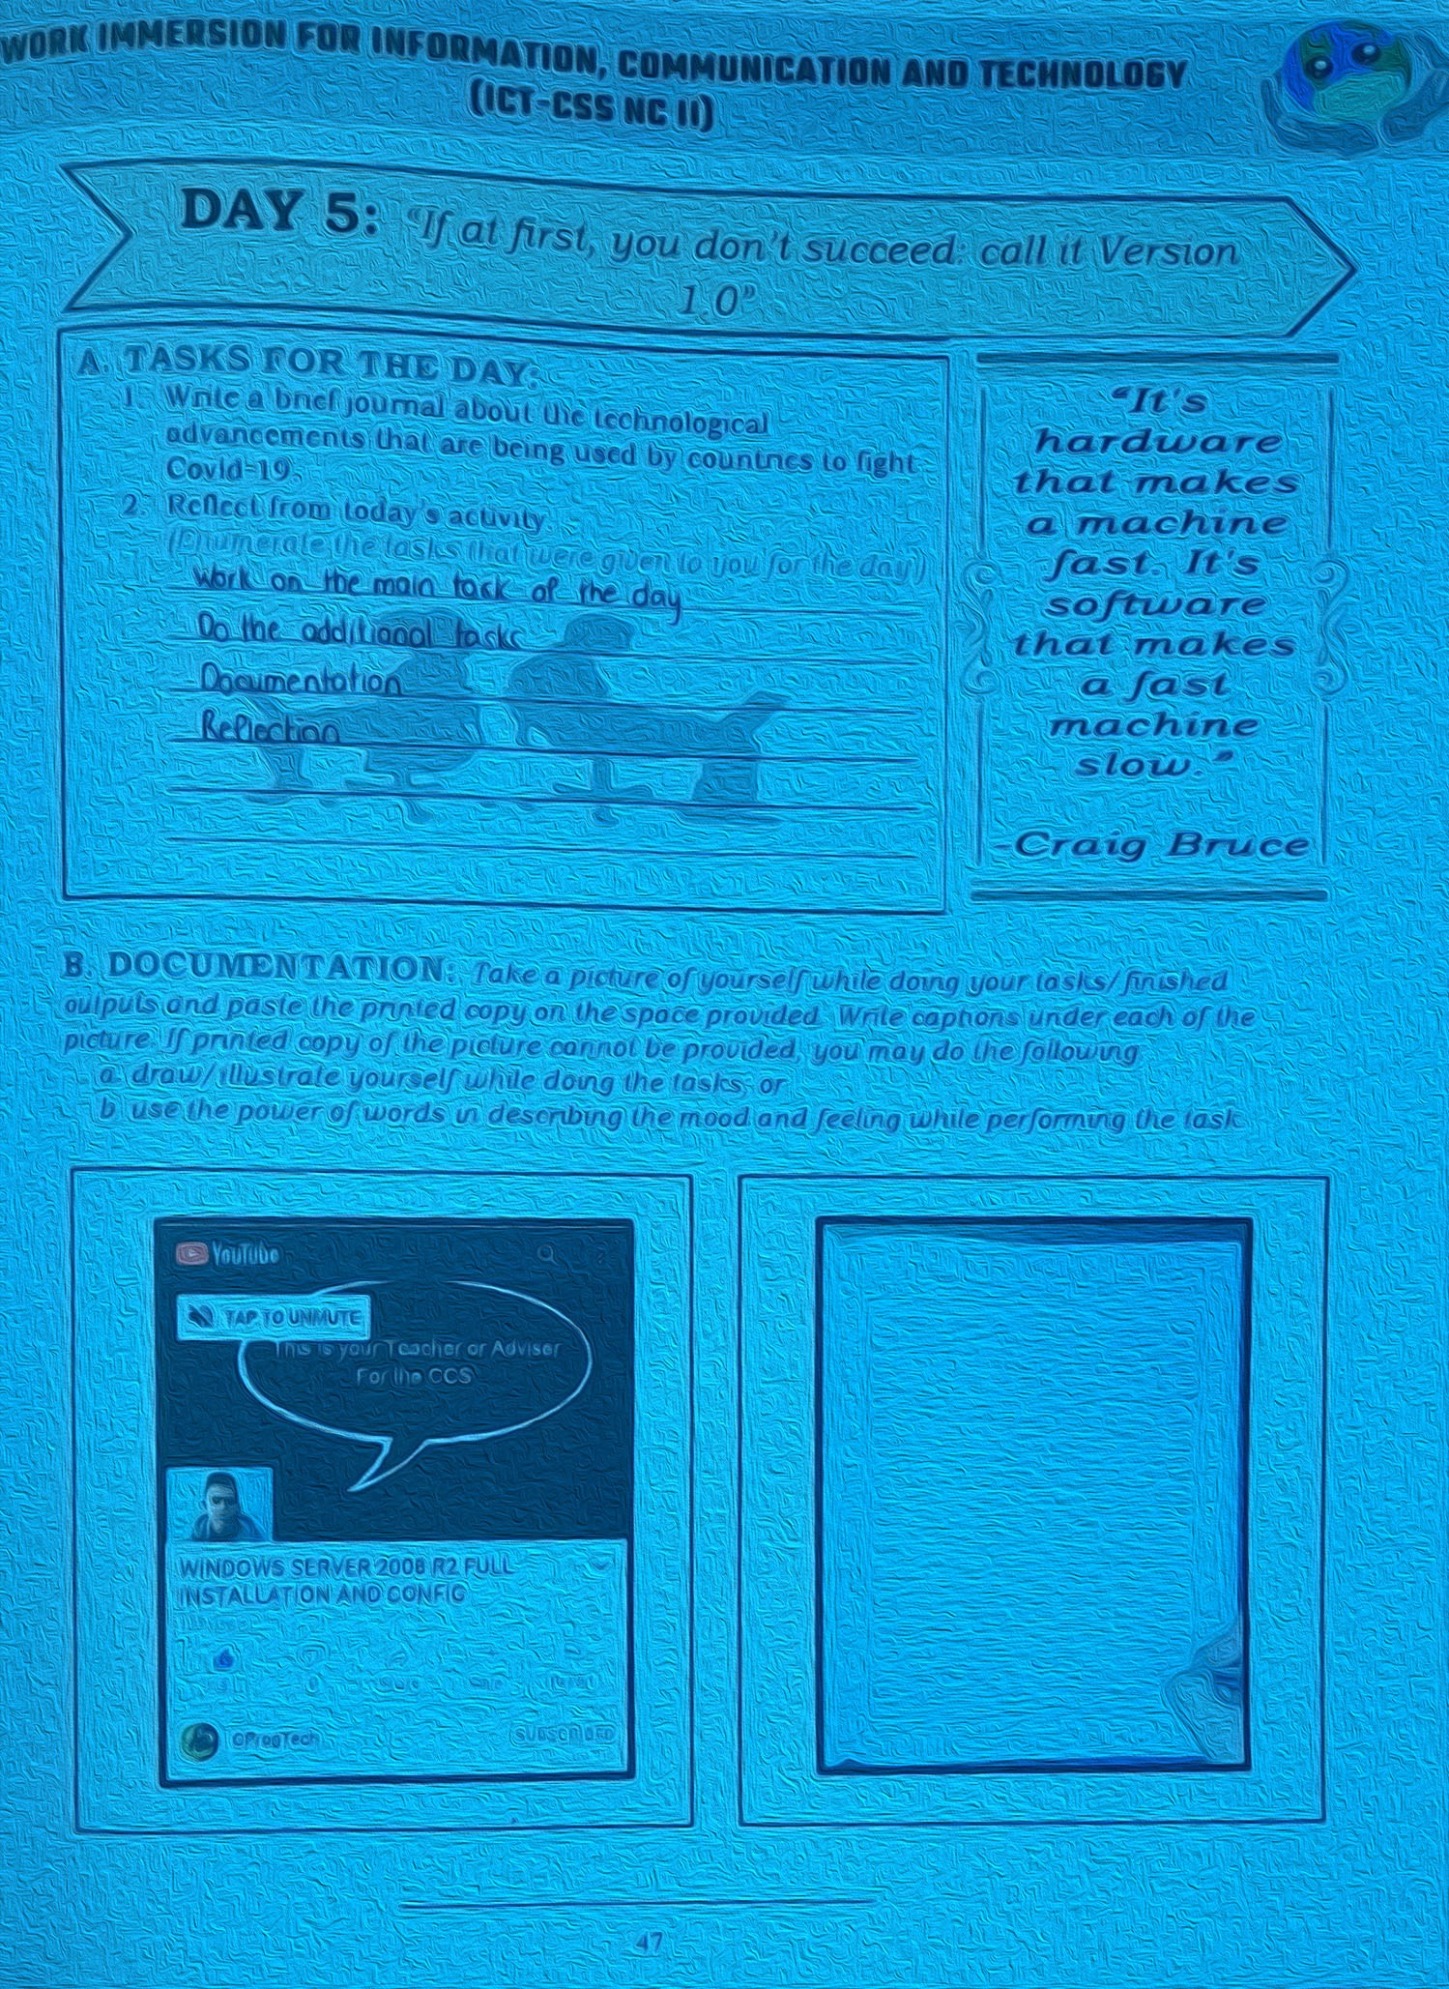 WORK IMMERSION FOR INFORMATION, COMMUNICATION AND TECHNOLOGY
(ICT-CSS NC II)
DAY 5: "If at first, you don't succeed: call it Version
1.0"
A. TASKS FOR THE DAY:
1. Write a brief journal about the technological
advancements that are being used by countries to fight
Covid-19.
2. Reflect from today's activity.
(Enumerate the tasks that were given to you for the day!)
Work on the main task of the day
Do the additional tasks
Documentation
Reflection
"It's
hardware
that makes
a machine
fast. It's
software
that makes
a fast
machine
slow."
-Craig Bruce
B. DOCUMENTATION: Take a picture of yourself while doing your tasks/finished
outputs and paste the printed copy on the space provided. Write captions under each of the
picture. If printed copy of the picture cannot be provided, you may do the following
a. draw/illustrate yourself while doing the tasks; or
b. use the power of words in describing the mood and feeling while performing the task
YouTube
TAP TO UNMUTE
This is your Teacher or Adviser
For the CCS
WINDOWS SERVER 2008 R2 FULL
INSTALLATION AND CONFIG
SUBSCRIBED
47